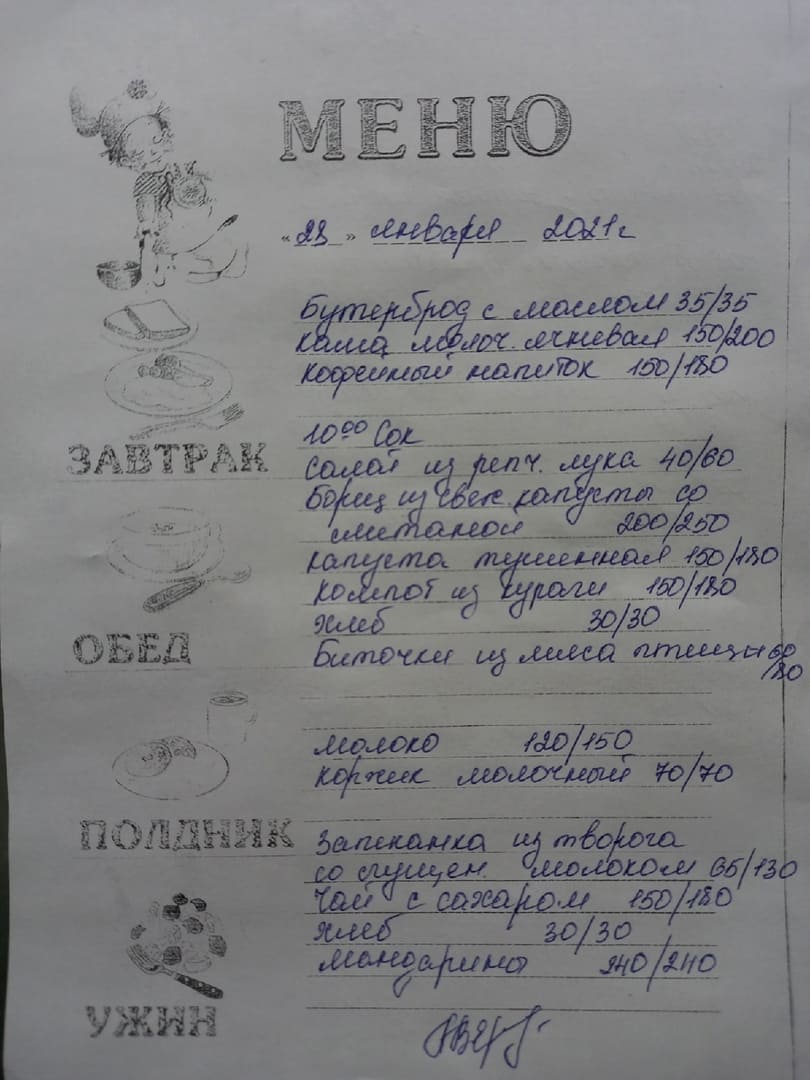 МЕНЮ
«28» января 2021г
Бутерброд с маслом 35/35
каша молоч. ячневая 150/200
кофейный напиток 150/180
10⁰⁰ Сок
ЗАВТРАК
салат из репч. лука 40/60
Борщ из свеж. капусты со
сметаной 200/250
капуста тушенная 150/180
компот из кураги 150/180
хлеб 30/30
ОБЕД
Биточки из мяса птицы 60/80
молоко 120/150
коржик молочный 70/70
ПОЛДНИК
Запеканка из творога
со сгущен. молоком 65/130
Чай с сахаром 150/180
хлеб 30/30
мандарины 240/240
УЖИН